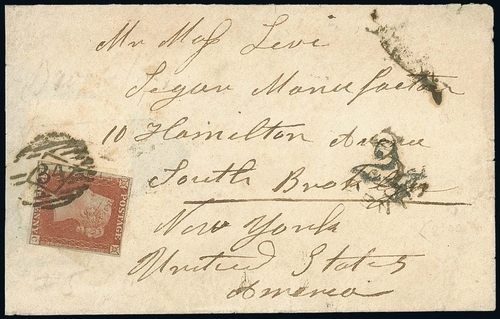 Mr Moss Levi
Segar Manufactor
10 Hamilton Avenue
South Brooklyn
New York
United States
America
POSTAGE
ONE PENNY